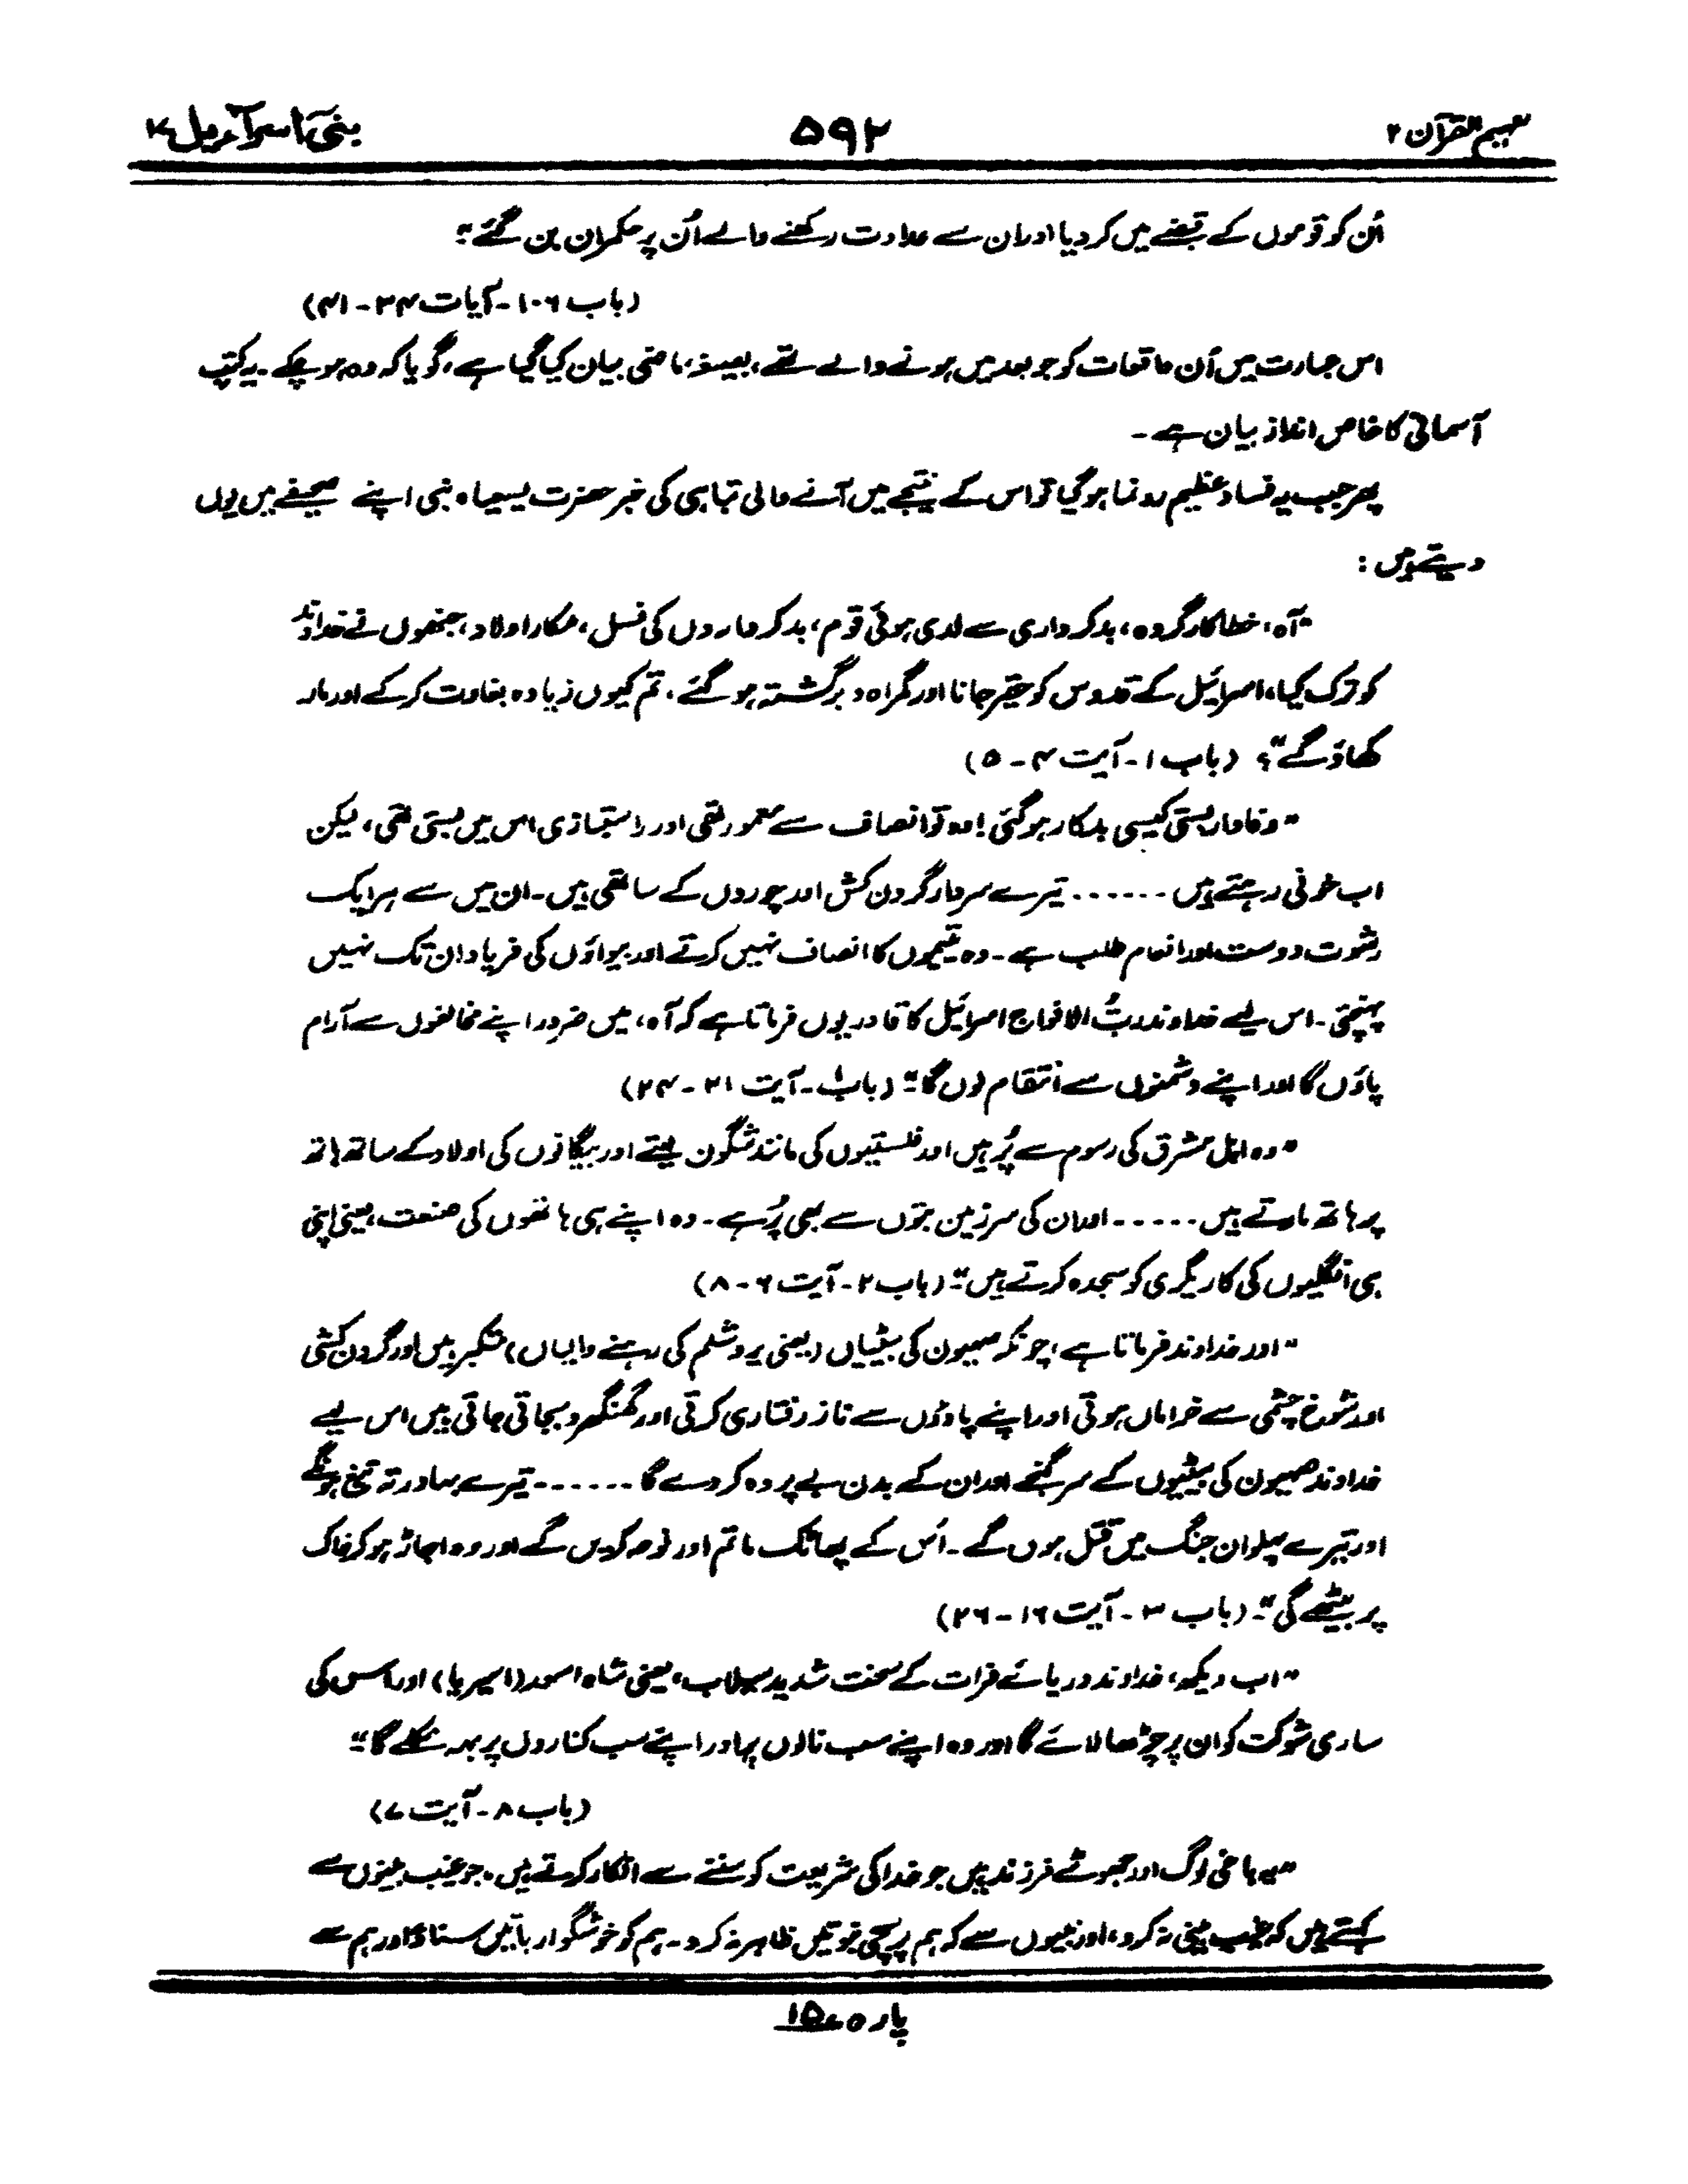 تفہیم القرآن ۲
۵۹۲
بنی اسرآءیل ۱۷
اُن کو قوموں کے قبضے میں کر دیا اور ان سے عداوت رکھنے والے اُن پر حکمران بن گئے“۔
(باب ۱۰۶- آیات ۳۴-۴۱)
اس عبارت میں اُن واقعات کو جو بعد میں ہونے والے تھے، بصیغۂ ماضی بیان کیا گیا ہے، گویا کہ وہ ہو چکے۔ یہ کتب
آسمانی کا خاص انداز بیان ہے۔
پھر جب یہ فساد عظیم رونما ہو گیا تو اس کے نتیجے میں آنے والی تباہی کی خبر حضرت یسعیاہ نبی اپنے صحیفے میں یوں
دیتے ہیں:
”آہ، خطاکار گروہ، بدکرداری سے لدی ہوئی قوم، بدکرداروں کی نسل، مکار اولاد، جنھوں نے خداوند
کو ترک کیا، اسرائیل کے قدوس کو حقیر جانا اور گمراہ و برگشتہ ہو گئے، تم کیوں زیادہ بغاوت کر کے اور مار
کھاؤ گے“؟ (باب ۱- آیت ۴-۵)
”وفادار بستی کیسی بدکار ہو گئی! وہ تو انصاف سے معمور تھی اور راستبازی اس میں بستی تھی، لیکن
اب خونی رہتے ہیں ...... تیرے سردار گردن کش اور چوروں کے ساتھی ہیں۔ ان میں سے ہر ایک
رشوت دوست اور انعام طلب ہے۔ وہ یتیموں کا انصاف نہیں کرتے اور بیواؤں کی فریاد ان تک نہیں
پہنچتی۔ اس لیے خداوند ربُّ الافواج اسرائیل کا قادر یوں فرماتا ہے کہ آہ، میں ضرور اپنے مخالفوں سے آرام
پاؤں گا اور اپنے دشمنوں سے انتقام لوں گا“۔ (باب ۱- آیت ۲۱-۲۴)
”وہ اہل مشرق کی رسوم سے پُر ہیں اور فلستیوں کی مانند شگون لیتے اور بیگانوں کی اولاد کے ساتھ ہاتھ
پر ہاتھ مارتے ہیں ..... اور ان کی سرزمین بتوں سے بھی پُر ہے۔ وہ اپنے ہی ہاتھوں کی صنعت، یعنی اپنی
ہی انگلیوں کی کاریگری کو سجدہ کرتے ہیں“۔ (باب ۲- آیت ۶-۸)
”اور خداوند فرماتا ہے، چونکہ صیہون کی بیٹیاں (یعنی یروشلم کی رہنے والیاں) متکبر ہیں اور گردن کشی
اور شوخ چشمی سے خراماں ہوتی اور اپنے پاؤں سے ناز رفتاری کرتی اور گھنگھرو بجاتی جاتی ہیں اس لیے
خداوند صیہون کی بیٹیوں کے سر گنجے اور ان کے بدن بے پردہ کر دے گا ...... تیرے بہادر تہ تیغ ہونگے
اور تیرے پہلوان جنگ میں قتل ہوں گے۔ اُس کے پھاٹک ماتم اور نوحہ کریں گے اور وہ اجاڑ ہو کر خاک
پر بیٹھے گی“۔ (باب ۳- آیت ۱۶-۲۶)
”اب دیکھ، خداوند دریائے فرات کے سخت شدید سیلاب، یعنی شاہ اسور (اسیریا) اور اس کی
ساری شوکت کو ان پر چڑھا لائے گا اور وہ اپنے سب نالوں پر اور اپنے سب کناروں پر بہہ نکلے گا“۔
(باب ۸- آیت ۷)
”یہ باغی لوگ اور جھوٹے فرزند ہیں جو خدا کی شریعت کو سننے سے انکار کرتے ہیں، جو غیب بینوں سے
کہتے ہیں کہ غیب بینی نہ کرو، اور نبیوں سے کہ ہم پر سچی نبوتیں ظاہر نہ کرو۔ ہم کو خوشگوار باتیں سناؤ اور ہم سے
پارہ ۱۵